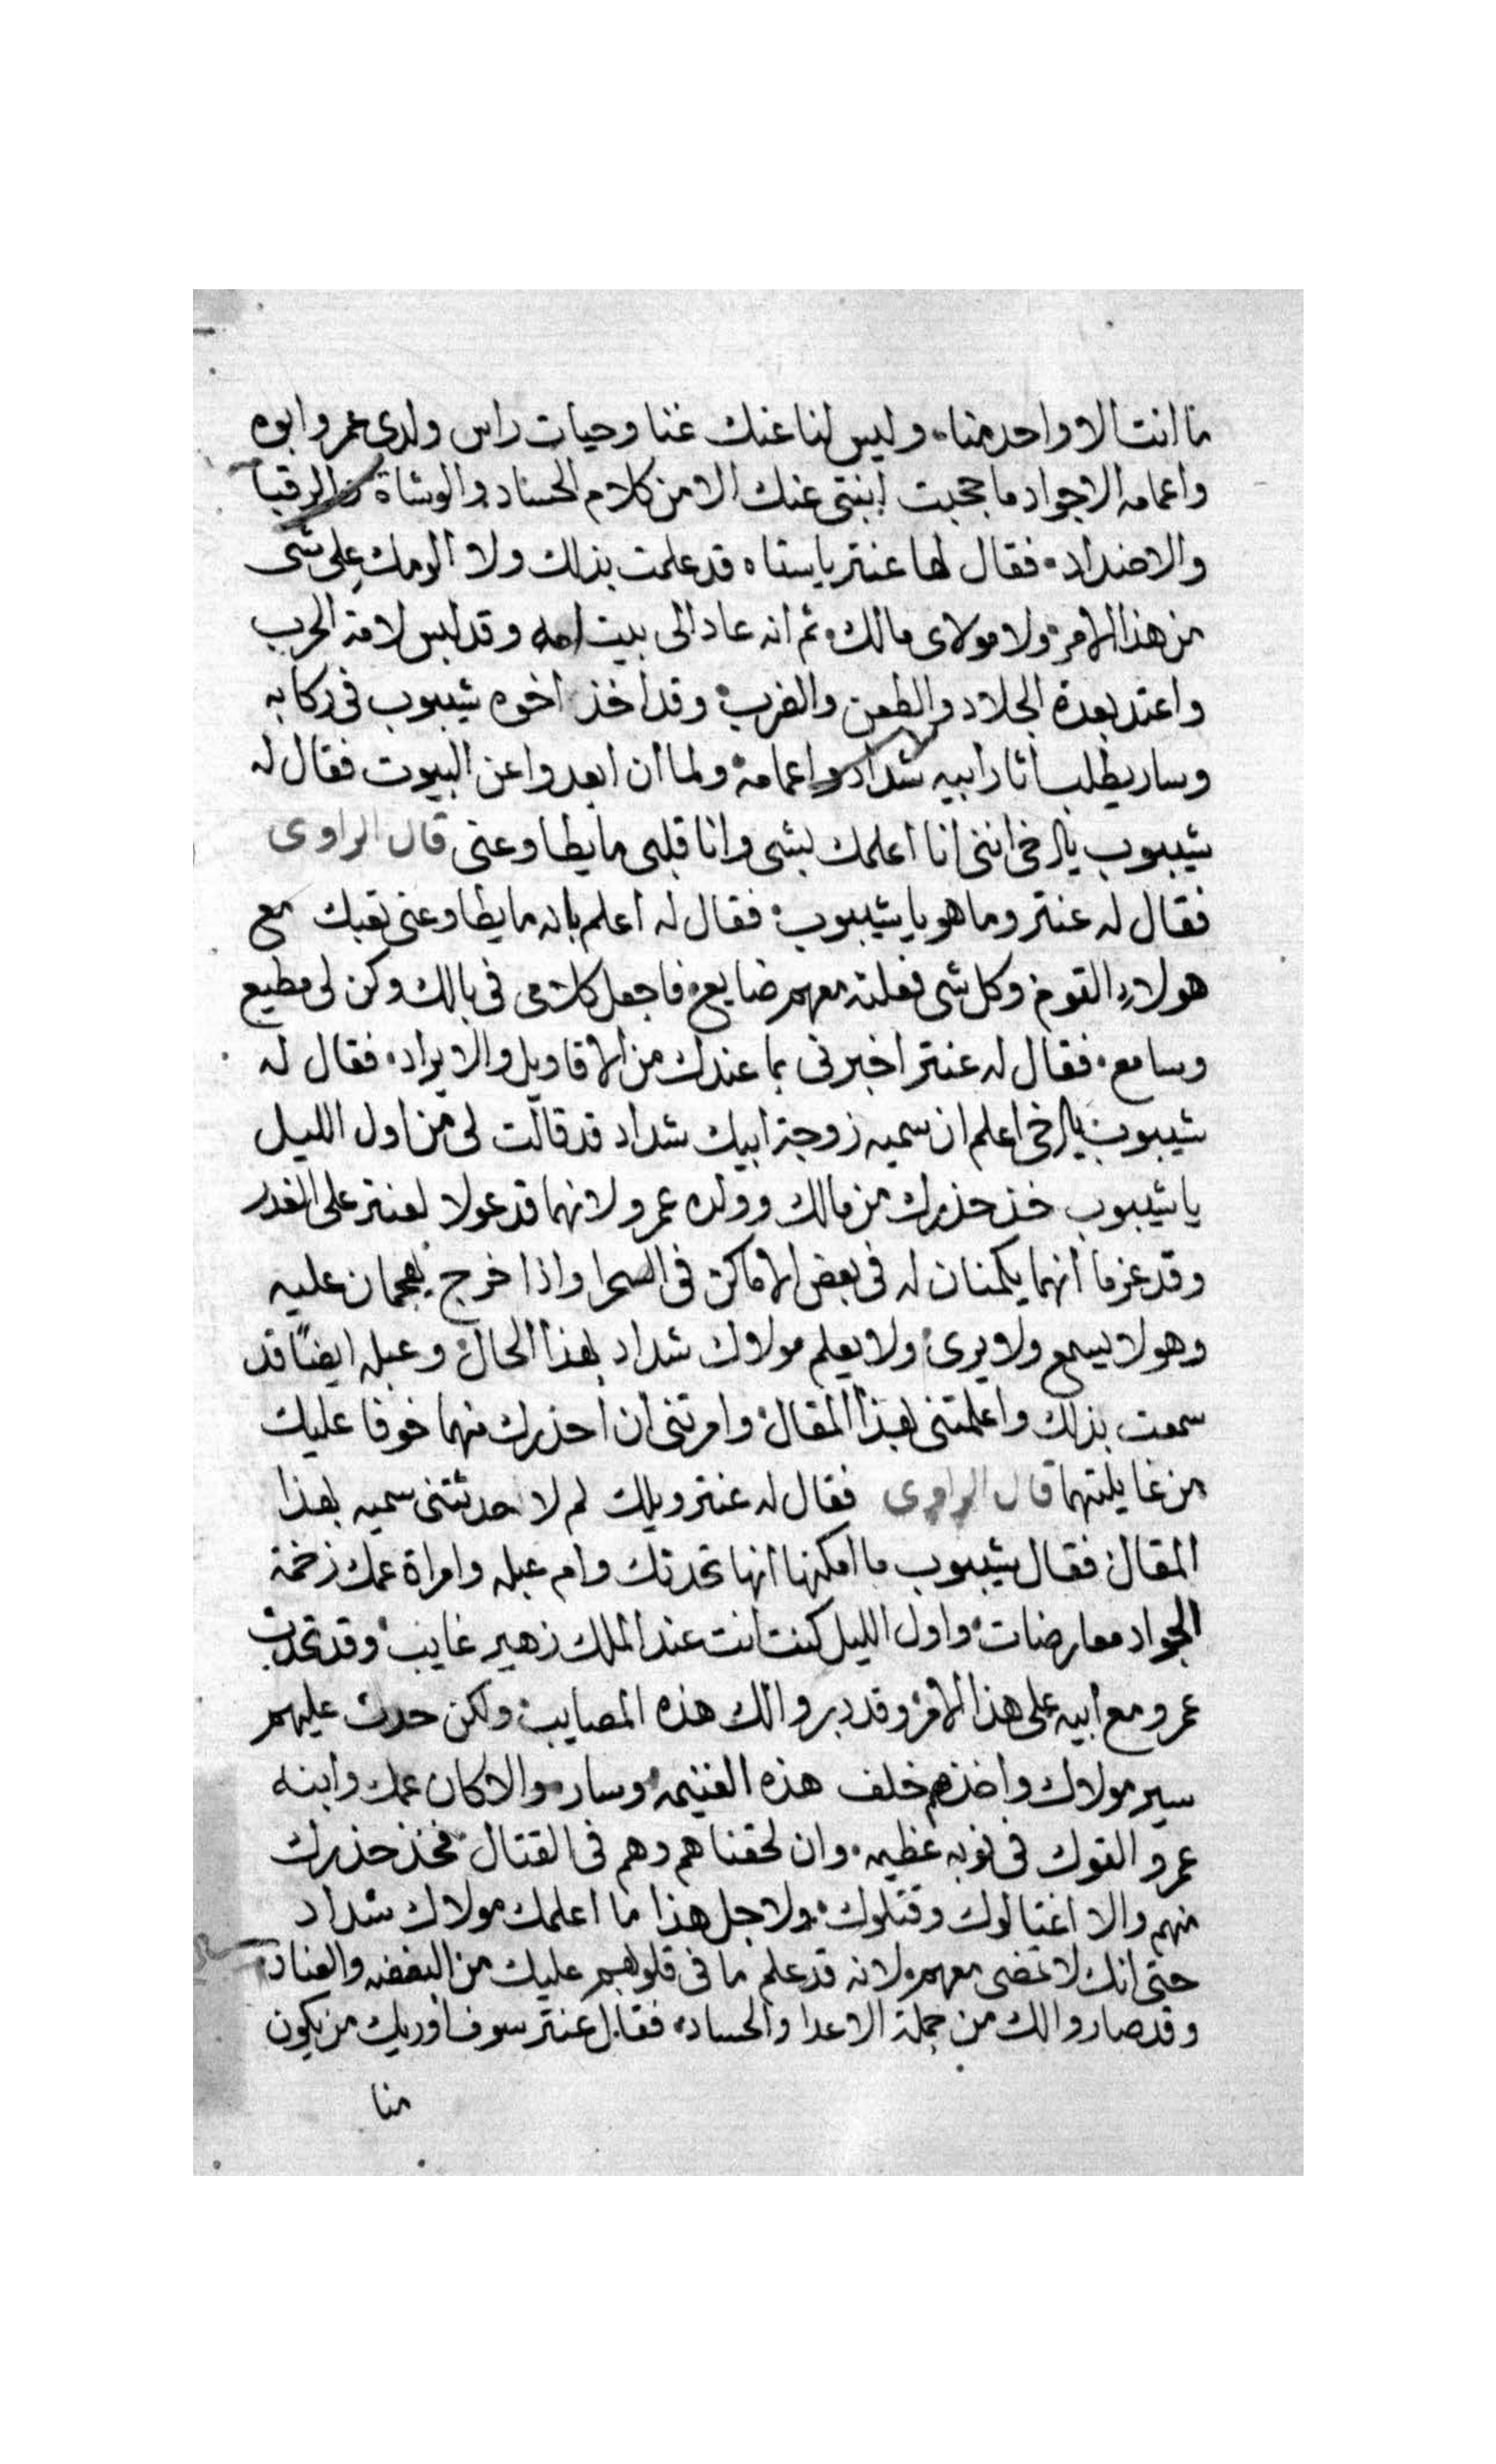 ما انت الا واحد منا، وليس لنا عنك غنا وحيات راس ولدى عمر وابوه
واعمامه الاجواد ما حجبت ابنتى عنك الا من كلام الحساد والوشاة والرقبا
والاضداد، فقال لها عنتر ياستاه قد علمت بذلك ولا الومك على شى
من هذا الامر ولا مولاى مالك ثم انه عاد الى بيت امه وقد لبس لامة الحرب
واعتد بعدة الجلاد والطعن والضرب وقد اخذ اخوه شيبوب فى ركابه
وسار يطلب اثار ابيه شداد واعمامه ولما ان ابعدوا عن البيوت فقال له
شيبوب يا اخى اننى انا اعلمك بشى وانا قلبى ما يطاوعنى قال الراوى
فقال له عنتر وما هو يا شيبوب فقال له اعلم بانه ما يطاوعنى تعبك مع
هولاء القوم وكل شى فعلته معهم ضايع فاجعل كلامى فى بالك وكن لى مطيع
وسامع، فقال له عنتر اخبرنى بما عندك من الاقاويل والايراد، فقال له
شيبوب يا اخى اعلم ان سميه زوجة ابيك شداد قد قالت لى من اول الليل
يا شيبوب خذ حذرك من مالك وولده عمرو لانهما قد عولا لعنتر على الغدر
وقد عزما انهما يكمنان له فى بعض الاماكن فى السحرا واذا خرج يهجمان عليه
وهو لا يسمع ولا يرى ولا يعلم مولاك شداد بهذا الحال وعبله ايضًا قد
سمعت بذلك واعلمتنى بهذا المقال وامرتنى ان احذرك منهما خوفا عليك
من غايلتهما قال الراوى فقال له عنتر ويلك لم لا حدثتنى سميه بهذا
المقال فقال شيبوب ما امكنها انها تحدتك وام عبله وامراة عمك زخمة
الجواد معارضات واول الليل كنت انت عند الملك زهير غايب وقد تحدث
عمرو مع ابيه على هذا الامر وقد دبروا لك هذه المصايب ولكن حدث عليهم
سير مولاك واخذهم خلف هذه الغنيمه وسارو والا كان عمك وابنه
عمرو القوك فى نوبه عظيمه، وان لحقناهم وهم فى القتال فخذ حذرك
منهم والا اغتالوك وقتلوك، ولاجل هذا ما اعلمك مولاك شداد
حتى انك لا تمضى معهم لانه قد علم ما فى قلوبهم عليك من البغضه والعناد
وقد صاروا لك من جملة الاعدا والحساد، فقال عنتر سوف اوريك من يكون
منا